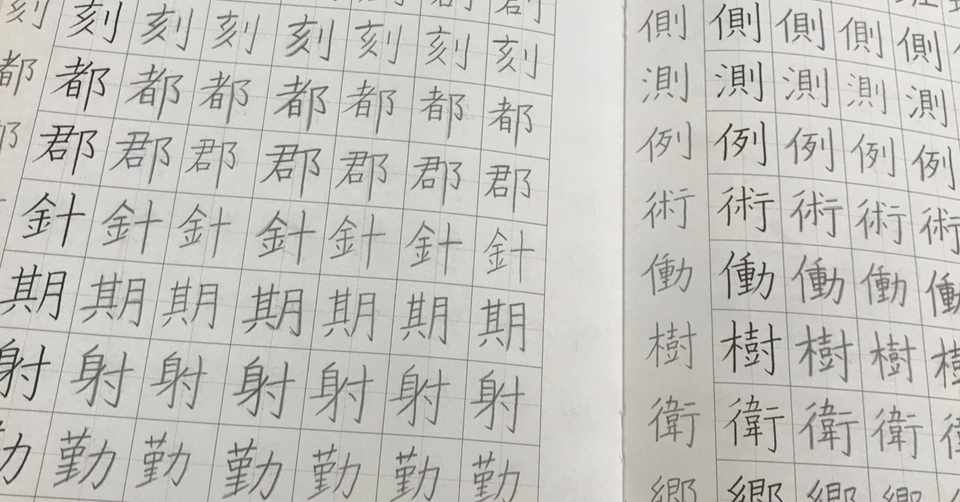 刻刻刻刻刻刻刻
都都都都都都都
郡郡郡郡郡郡郡
針針針針針針針
期期期期期期期
射射射射射射射
勤勤勤勤勤勤
側側側側側
測測測測測
例例例例例
術術術術術
働働働働働
樹樹樹樹
衛衛衛衛
郷郷郷郷